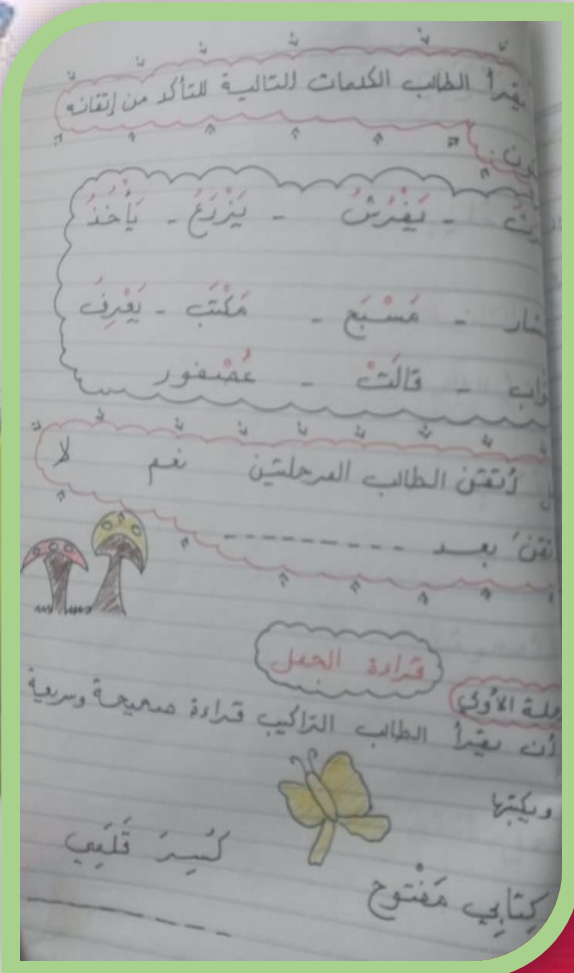 يقرأ الطالب الكلمات التالية للتأكد من إتقانه
يَفْرُشُ - يَزْرَعُ - يَأْخُذُ
مَسْبَح - مَكْتَب - يَعْرِفُ
قالَتْ - عُصْفور
أتقن الطالب المرحلتين نعم لا
بعد ---------
قراءة الجمل
الأولى
أن يقرأ الطالب التراكيب قراءة صحيحة وسريعة
ويكتبها
كِتابي مَفْتوح كُسِرَ قَلَمي